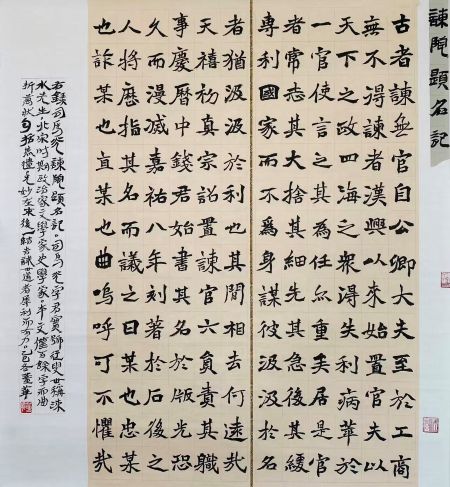 諫院題名記
古者諫無官自公卿大夫至於工商
無不淂諫者漢興以来始置官夫以
天下之政四海之衆淂失利病萃於
一官使言之其為任亦重矣居是官
者常志其大捨其細先其急後其緩
專利國家而不為身謀彼汲汲於名
者猶汲汲於利也其間相去何遠哉
天禧初真宗詔置諫官六員責其職
事慶曆中錢君始書其名於版光恐
久而漫滅嘉祐八年刻著於石後之
人將歷指其名而議之曰某也忠某
也詐某也直某也曲嗚呼可不懼哉
右錄司馬光諫院題名記。司馬光字君實世稱涑
水先生北宋時期政治家文學家史學家。本文僅百餘字而曲
折萬狀妙至末後一犀利而有力。